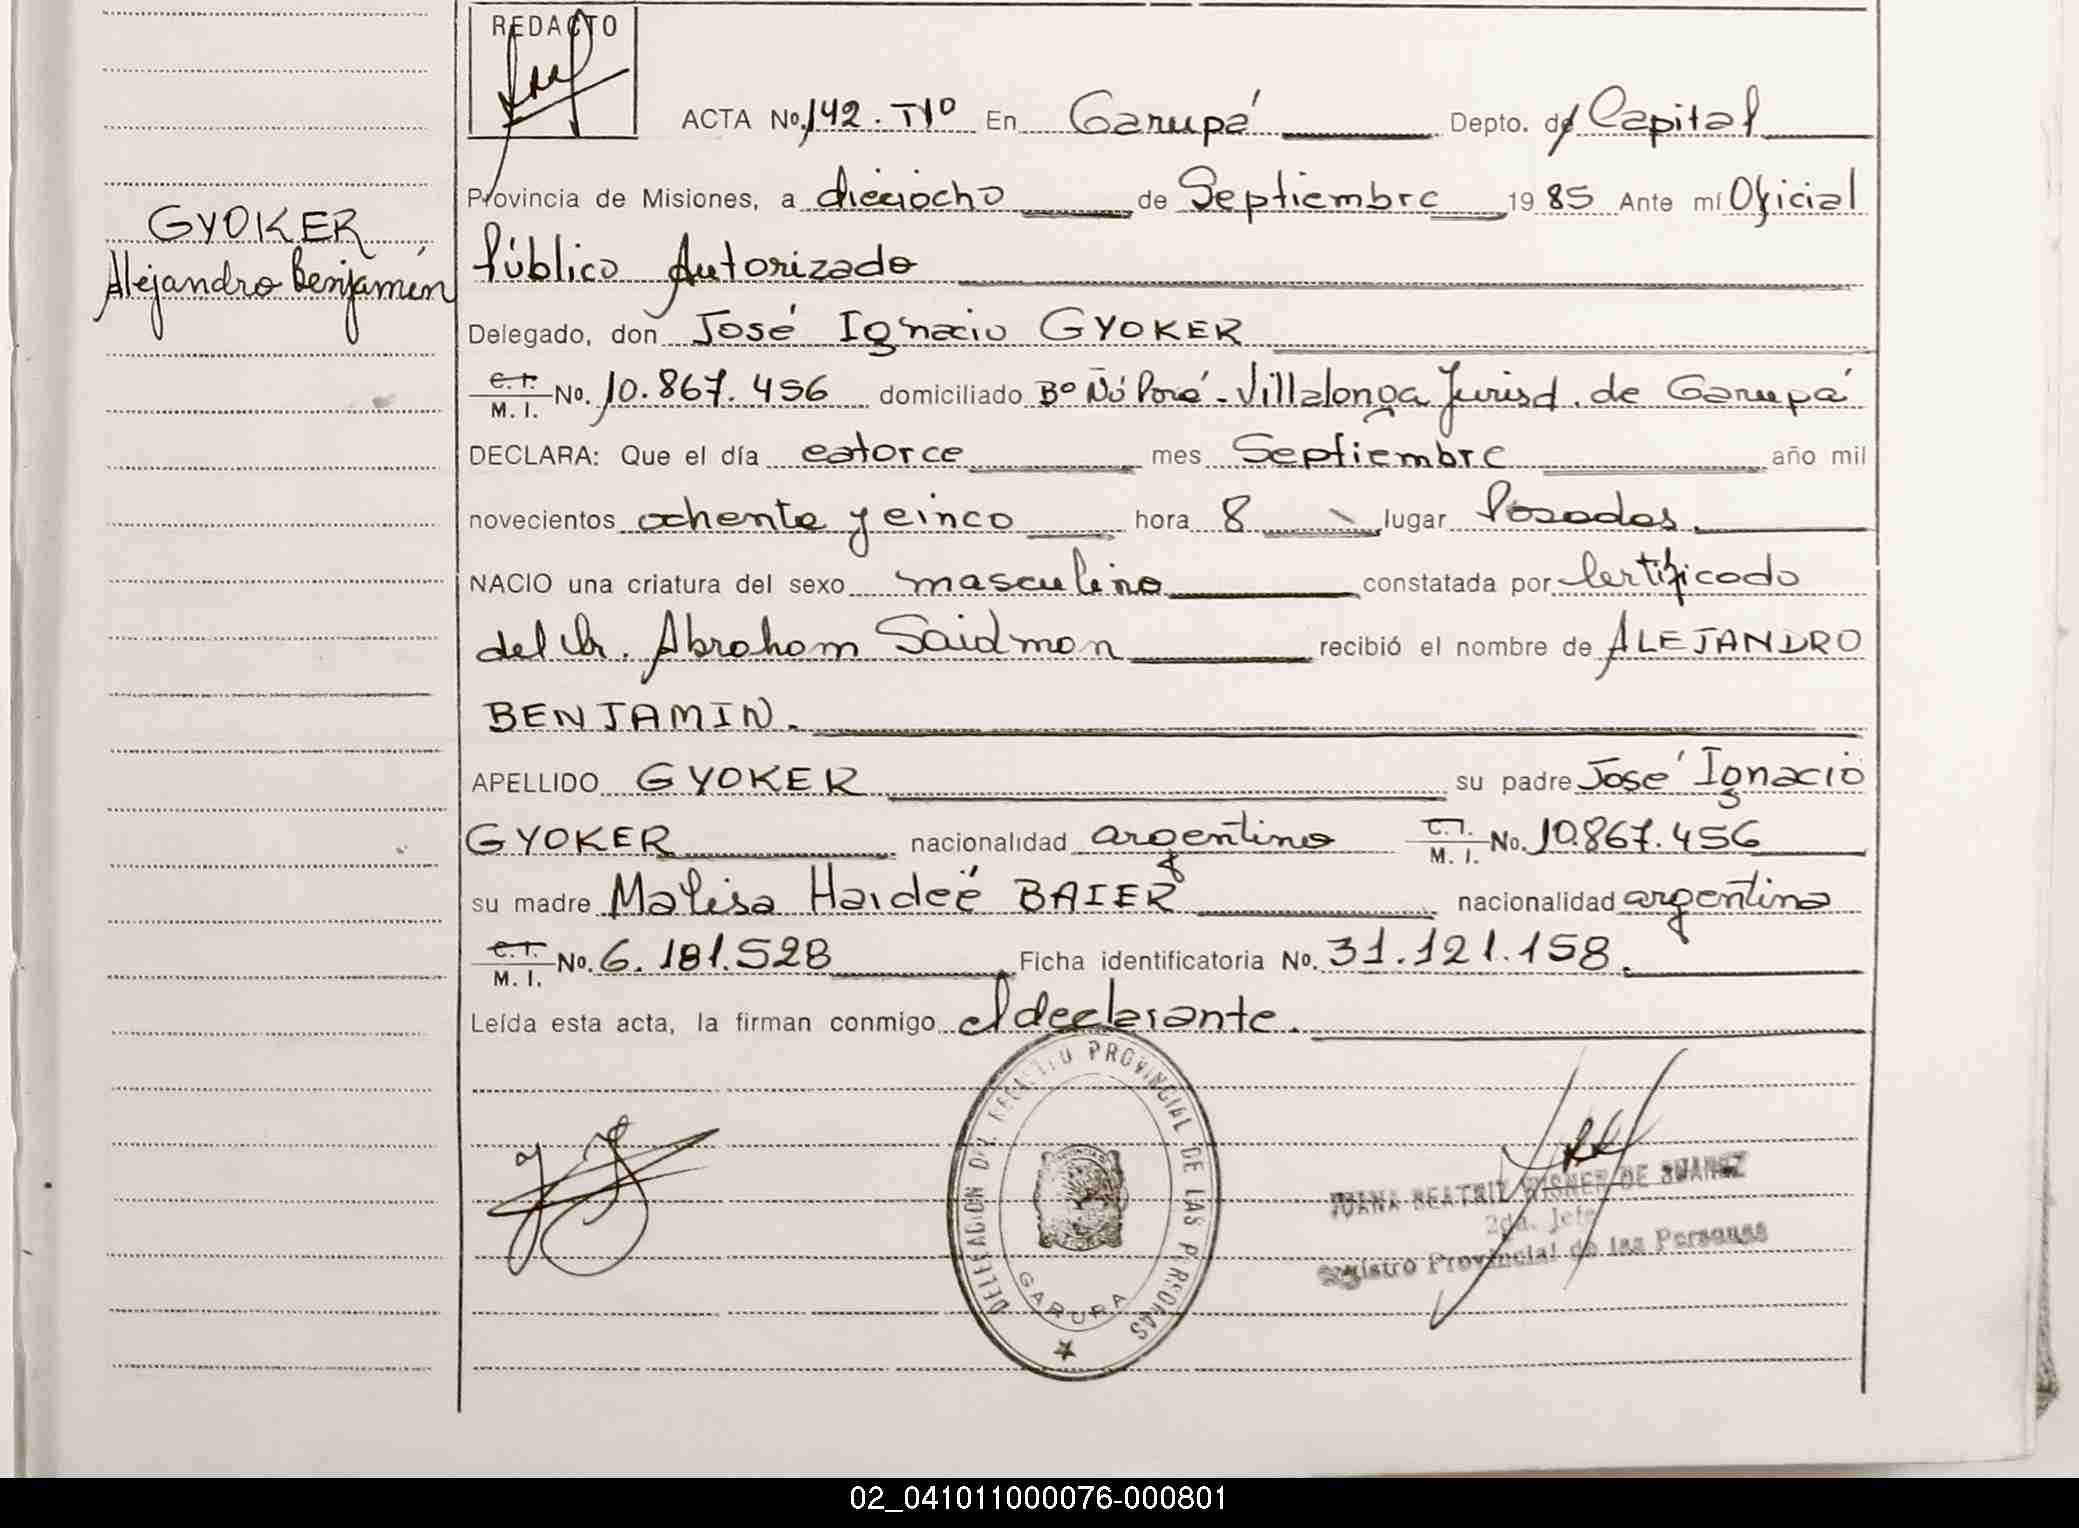 REDACTO
ACTA No. 142. Tº1º En Garupá Depto. de Capital
Provincia de Misiones, a dieciocho de Septiembre 1985 Ante mí Oficial
GYOKER
Alejandro Benjamín
Público Autorizado
Delegado, don José Ignacio GYOKER
C.I. M. I. No. 10.867.456 domiciliado Bº Ñú Porá - Villalonga Jurisd. de Garupá
DECLARA: Que el día catorce mes Septiembre año mil
novecientos ochenta y cinco hora 8 lugar Posadas.
NACIO una criatura del sexo masculino constatada por Certificado
del Dr. Abraham Saidman recibió el nombre de ALEJANDRO
BENJAMIN.
APELLIDO GYOKER su padre José Ignacio
GYOKER nacionalidad argentino C.I. M. I. No. 10.867.456
su madre Malisa Haideé BAIER nacionalidad argentina
C.I. M. I. No. 6.181.528 Ficha identificatoria No. 31.121.158.
Leída esta acta, la firman conmigo el declarante.
DELEGACION DEL REGISTRO PROVINCIAL DE LAS PERSONAS
GARUPA
JUANA BEATRIZ DE SUAREZ
2da. Jefe
Registro Provincial de las Personas
02_041011000076-000801